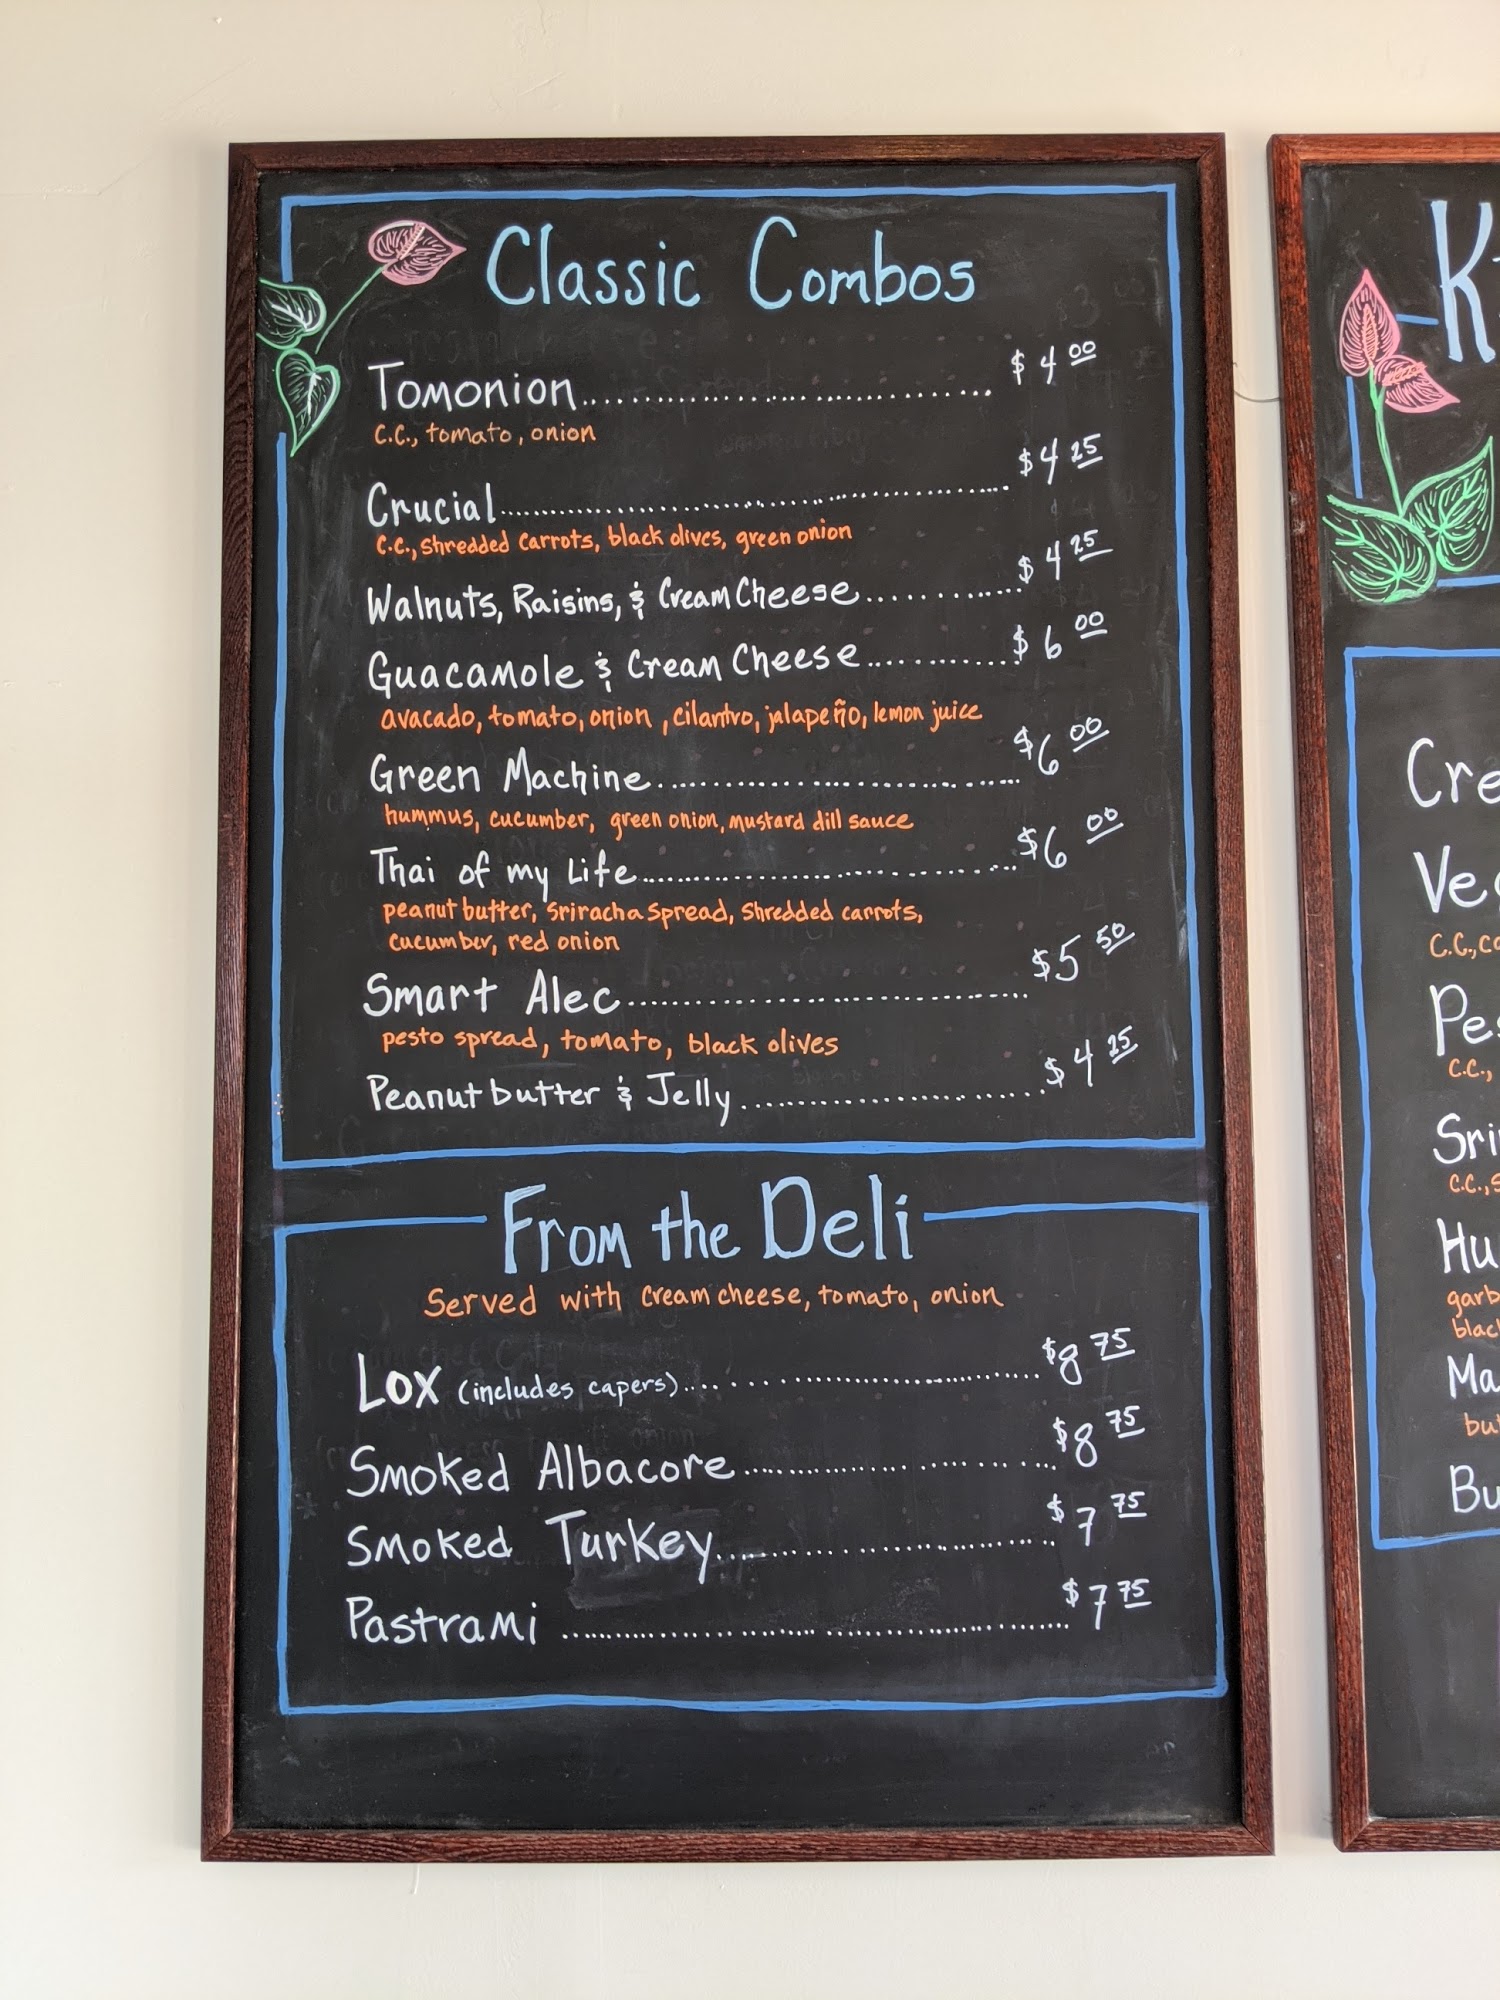 Classic Combos
Tomonion $4.00
c.c., tomato, onion
Crucial $4.25
c.c., shredded carrots, black olives, green onion
Walnuts, Raisins, & Cream Cheese $4.25
Guacamole & Cream Cheese $6.00
avacado, tomato, onion, cilantro, jalapeño, lemon juice
Green Machine $6.00
hummus, cucumber, green onion, mustard dill sauce
Thai of my Life $6.00
peanut butter, sriracha spread, shredded carrots,
cucumber, red onion
Smart Alec $5.50
pesto spread, tomato, black olives
Peanut butter & Jelly $4.25
From the Deli
Served with cream cheese, tomato, onion
Lox (includes capers) $8.75
Smoked Albacore $8.75
Smoked Turkey $7.75
Pastrami $7.75
c.c.,
c.c.,